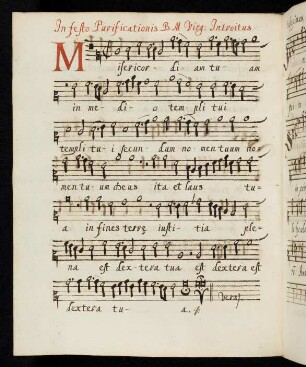 In festo Purificationis B. M. Virg. Introitus
Misericordiam tuam
in medio templi tui
templi tui secundum nomen tuum no-
men tuum Deus ita et laus tu-
a in fines terrę iustitia ple-
na est dextera tua est dextera est
dextera tua.